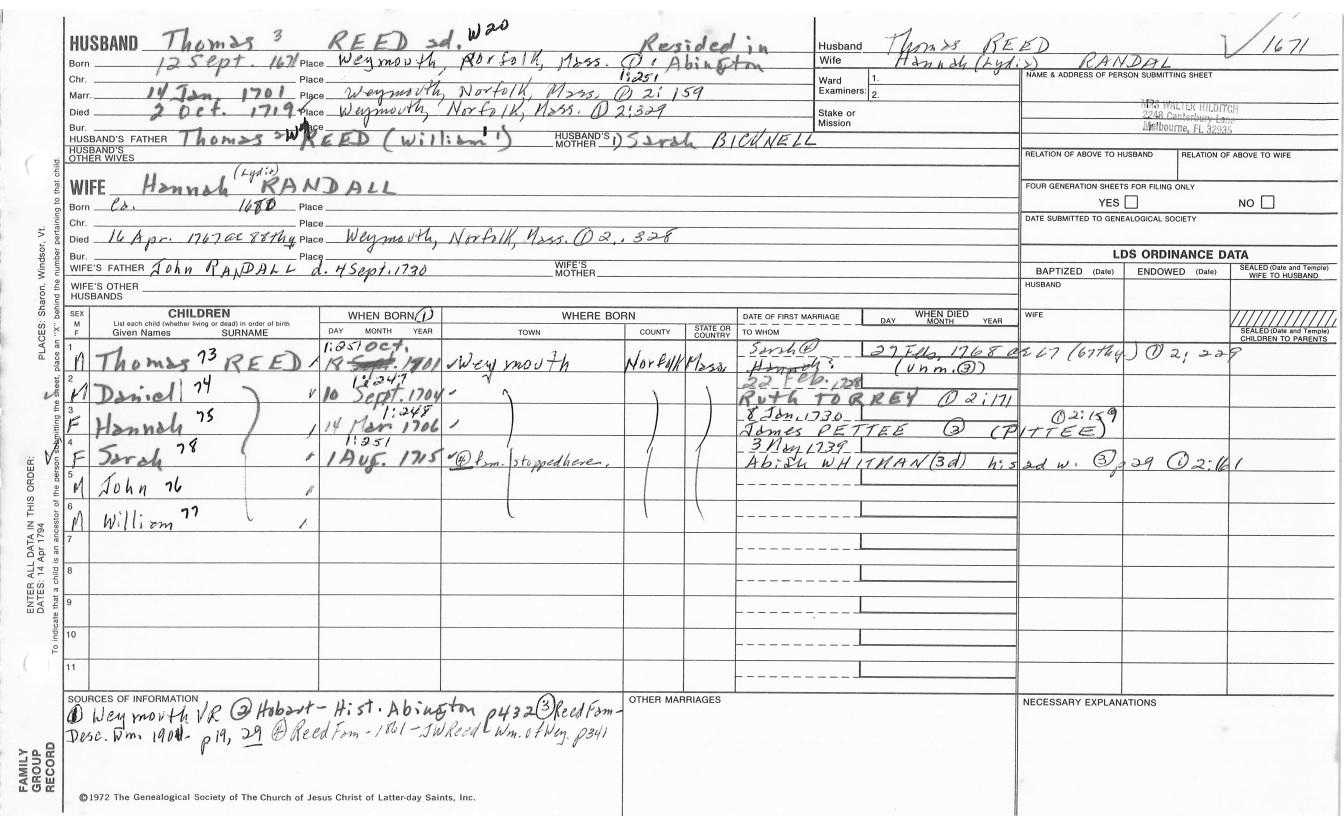 HUSBAND Thomas 3 REED sd. W20 Resided in
Born 12 Sept. 1671 Place Weymouth, Norfolk, Mass. ① : Abington
Chr. Place 1:251
Marr. 14 Jan, 1701 Place Weymouth, Norfolk, Mass. ① 2: 159
Died 2 Oct. 1719 Place Weymouth, Norfolk, Mass. ① 2:329
Bur. Place
HUSBAND'S FATHER Thomas REED (William 1) HUSBAND'S MOTHER 1) Sarah BICKNELL
HUSBAND'S OTHER WIVES
WIFE Hannah (Lydia) RANDALL
Born Ca. 1680 Place
Chr. Place
Died 16 Apr. 1767 ae 88thy Place Weymouth, Norfolk, Mass. ① 2.. 328
Bur. Place
WIFE'S FATHER John RANDALL d. 4 Sept. 1730 WIFE'S MOTHER
WIFE'S OTHER HUSBANDS
Husband Thomas REED 1671
Wife Hannah (Lydia) RANDAL
Ward Examiners: 1.
2.
Stake or Mission
NAME & ADDRESS OF PERSON SUBMITTING SHEET
MRS WALTER HILDITCH
2248 Canterbury Lane
Melbourne, FL 32935
RELATION OF ABOVE TO HUSBAND RELATION OF ABOVE TO WIFE
FOUR GENERATION SHEETS FOR FILING ONLY
YES NO
DATE SUBMITTED TO GENEALOGICAL SOCIETY
LDS ORDINANCE DATA
BAPTIZED (Date) ENDOWED (Date) SEALED (Date and Temple) WIFE TO HUSBAND
HUSBAND
WIFE
SEALED (Date and Temple) CHILDREN TO PARENTS
SEX M F
CHILDREN
List each child (whether living or dead) in order of birth
Given Names SURNAME
WHEN BORN ①
DAY MONTH YEAR
WHERE BORN
TOWN COUNTY STATE OR COUNTRY
DATE OF FIRST MARRIAGE
TO WHOM
WHEN DIED
DAY MONTH YEAR
1 M Thomas 73 REED 1:251 Oct. 12 Sept. 1701 Weymouth Norfolk Mass. Sarah ④ Hannah ? 27 Feb. 1768 ae 67 (67thy) ① 2: 229
(unm. ③)
2 M Daniel 74 1:247 10 Sept. 1704 22 Feb. 1728
Ruth TORREY ① 2:171
3 F Hannah 75 1:248 14 Mar. 1706 8 Jan, 1730 ① 2:159
James PETTEE ③ (PITTEE)
4 F Sarah 78 1:251 1 Aug. 1715 ④ fam. stopped here. 3 May 1739
Abiah WHITMAN (3d) his 2d w. ③ p29 ① 2:161
5 M John 76
6 M William 77
7
8
9
10
11
SOURCES OF INFORMATION
① Weymouth VR ② Hobart - Hist. Abington p432 ③ Reed Fam-
Desc. Wm. 1901 - p19, 29 ④ Reed Fam - 1861 - JW Reed - Wm. of Wey. p341
OTHER MARRIAGES
NECESSARY EXPLANATIONS
©1972 The Genealogical Society of The Church of Jesus Christ of Latter-day Saints, Inc.
ENTER ALL DATA IN THIS ORDER:
DATES: 14 Apr 1794 PLACES: Sharon, Windsor, Vt.
To indicate that a child is an ancestor of the person submitting the sheet, place an "X" behind the number pertaining to that child.
FAMILY GROUP RECORD